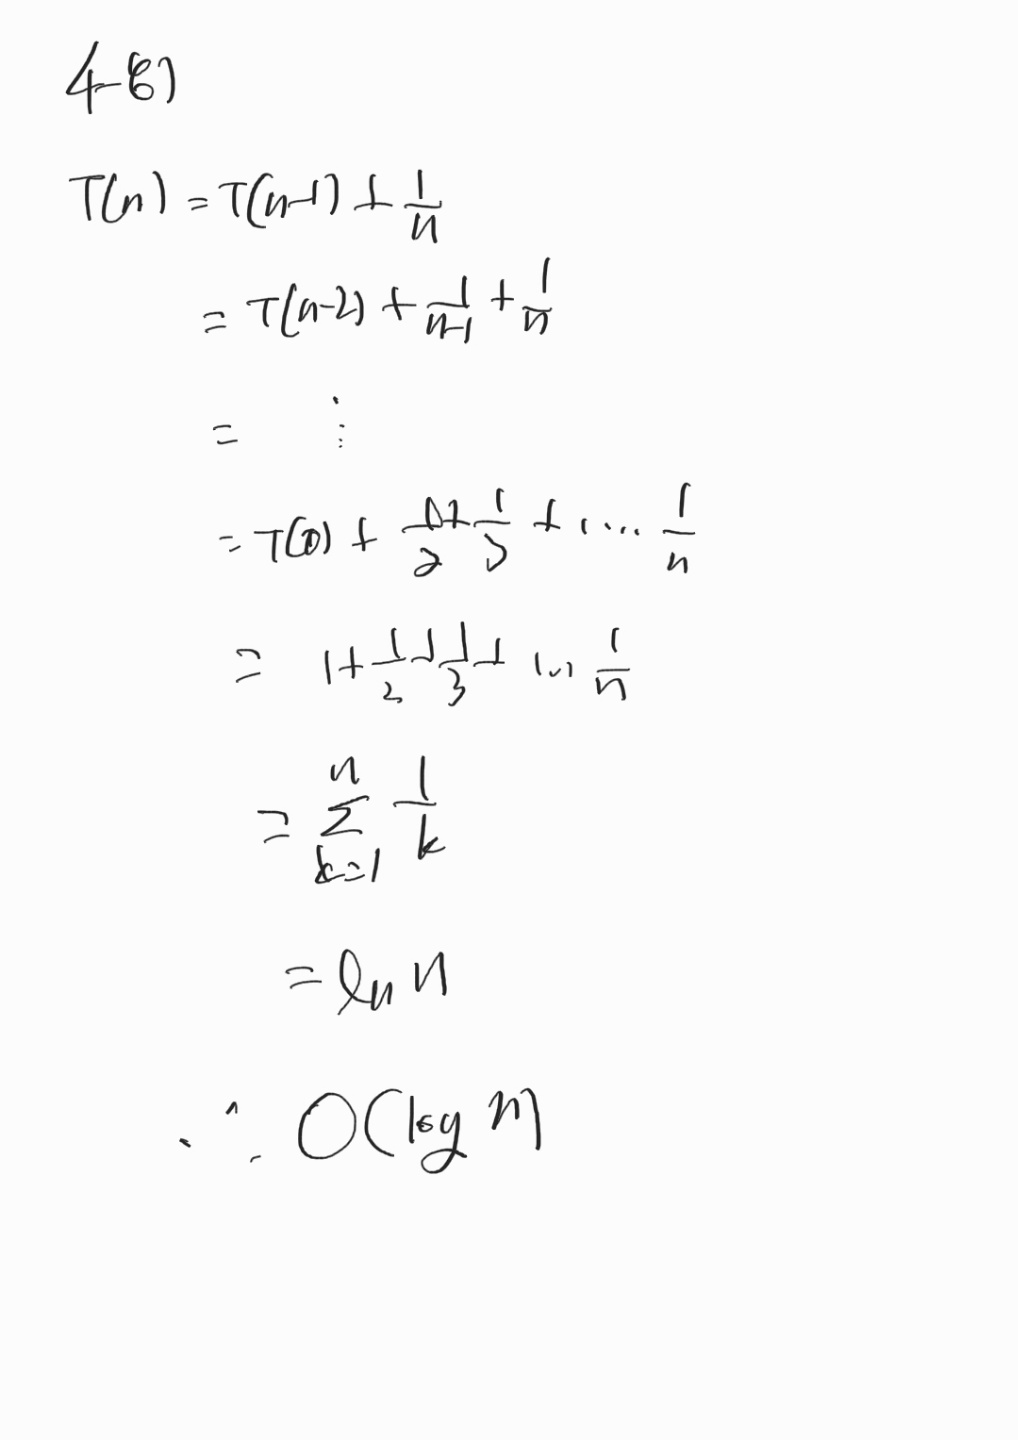 4-6)
T(n) = T(n-1) + 1/n
= T(n-2) + 1/(n-1) + 1/n
= ⋮
= T(1) + 1/2 + 1/3 + .... 1/n
= 1 + 1/2 + 1/3 + ... 1/n
= Σ_{k=1}^{n} 1/k
= ln n
∴ O(log n)